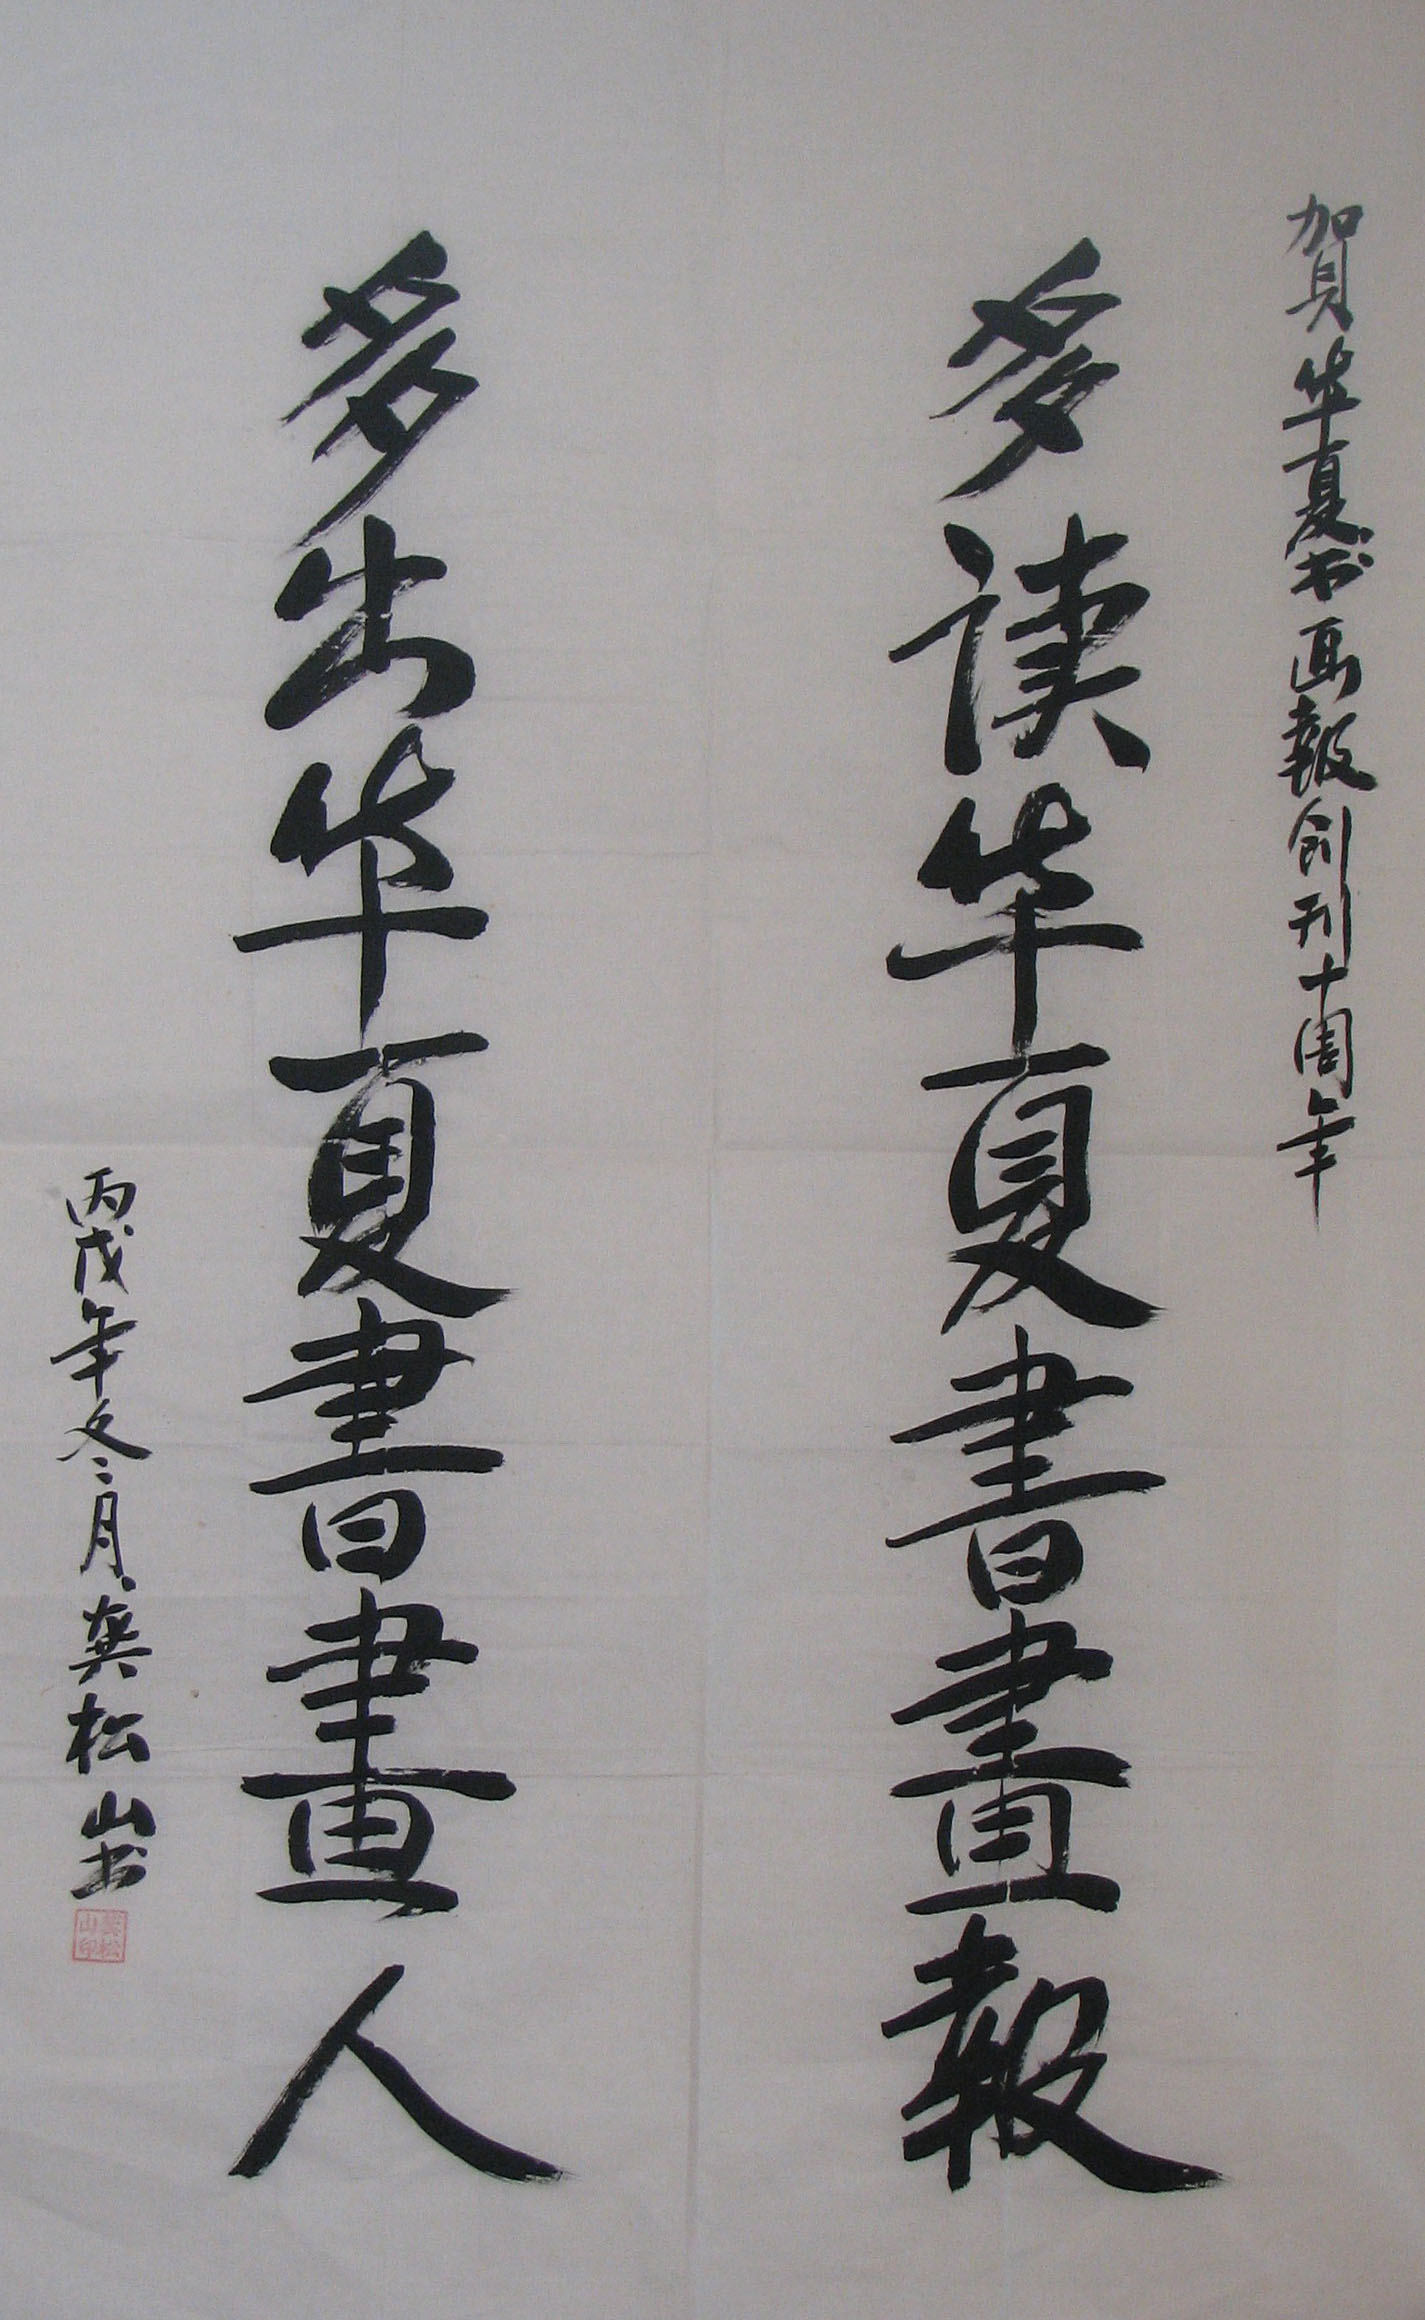 賀华夏书画報创刊十周年
多读华夏書畫報
多出华夏書畫人
丙戌年冬月龚松山书
龚松山印